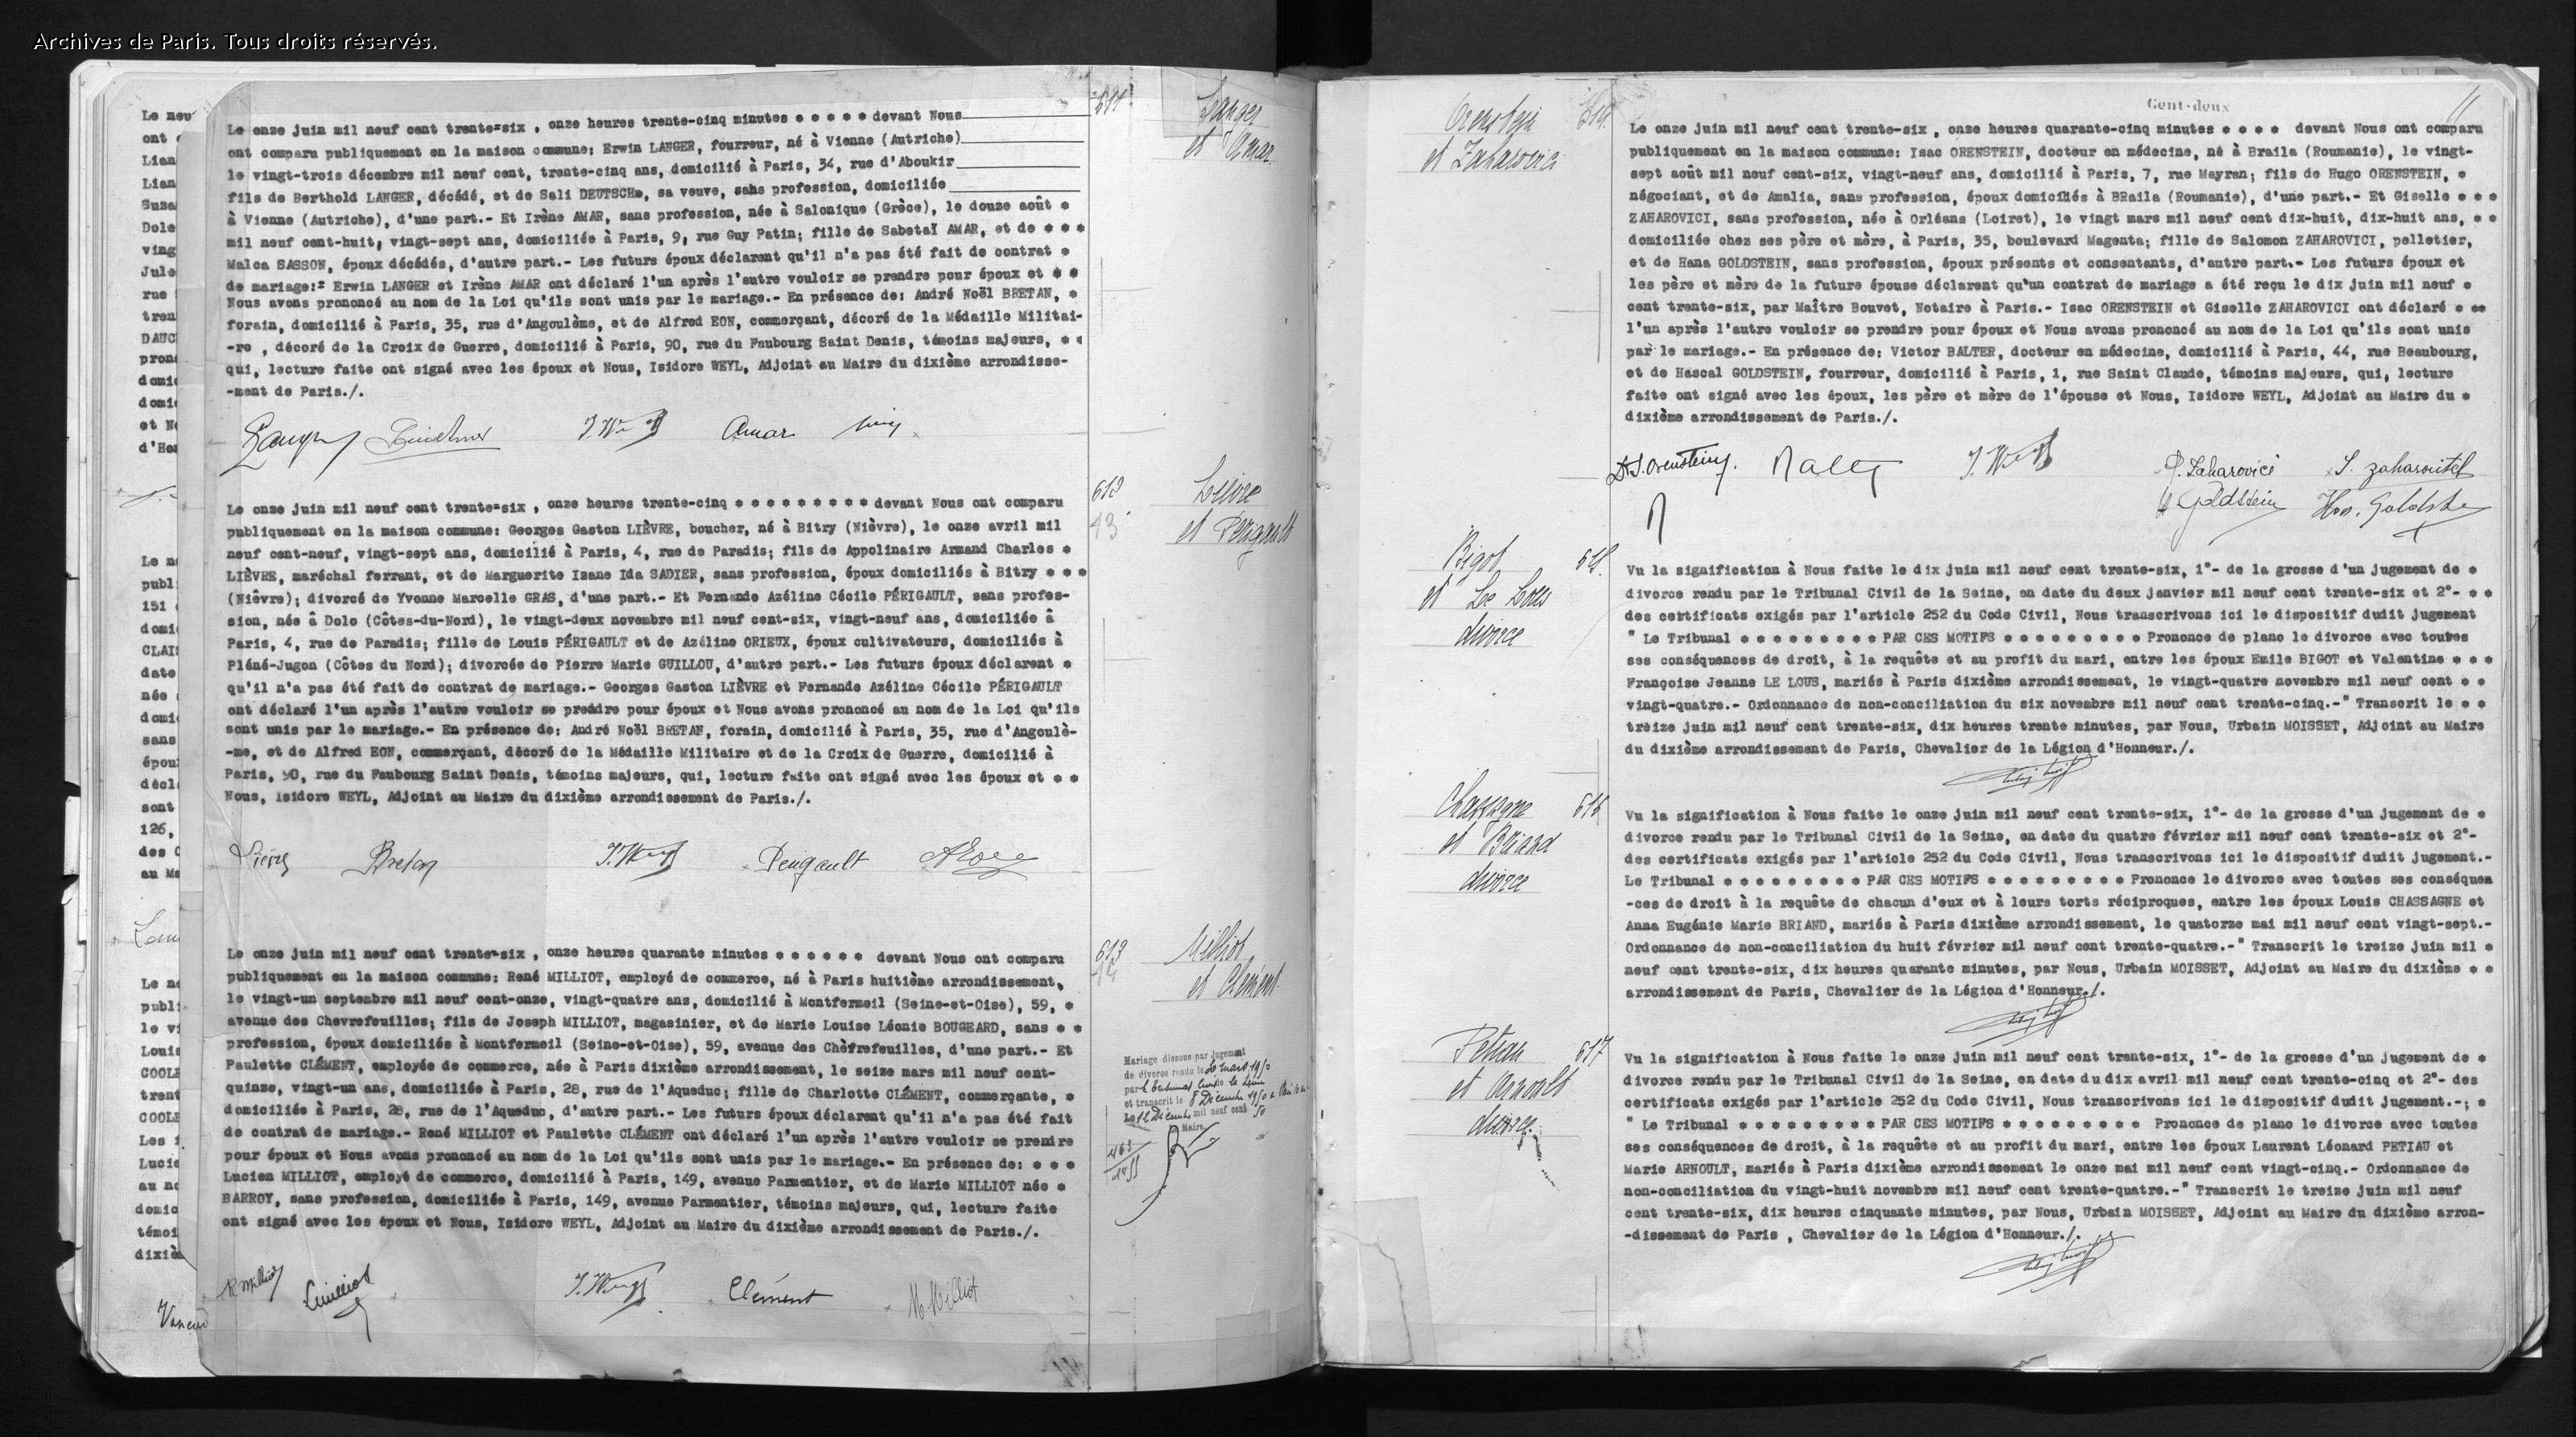 Archives de Paris. Tous droits réservés.
Le onze juin mil neuf cent trente-six , onze heures trente-cinq minutes * * * * * devant Nous
ont comparu publiquement en la maison commune: Erwin LANGER, fourreur, né à Vienne (Autriche)
le vingt-trois décembre mil neuf cent, trente-cinq ans, domicilié à Paris, 34, rue d'Aboukir
fils de Berthold LANGER, décédé, et de Sali DEUTSCH*, sa veuve, sans profession, domiciliée
à Vienne (Autriche), d'une part.- Et Irène AMAR, sans profession, née à Salonique (Grèce), le douze août *
mil neuf cent-huit, vingt-sept ans, domiciliée à Paris, 9, rue Guy Patin; fille de Sabetaï AMAR, et de * * *
Malca SASSON, époux décédés, d'autre part.- Les futurs époux déclarent qu'il n'a pas été fait de contrat *
de mariage:= Erwin LANGER et Irène AMAR ont déclaré l'un après l'autre vouloir se prendre pour époux et * *
Nous avons prononcé au nom de la Loi qu'ils sont unis par le mariage.- En présence de: André Noël BRETAN, *
forain, domicilié à Paris, 35, rue d'Angoulème, et de Alfred EON, commerçant, décoré de la Médaille Militai-
-re , décoré de la Croix de Guerre, domicilié à Paris, 90, rue du Faubourg Saint Denis, témoins majeurs, * *
qui, lecture faite ont signé avec les époux et Nous, Isidore WEYL, Adjoint au Maire du dixième arrondisse-
-ment de Paris./.
Amar
611
Langer
et Amar
Le onze juin mil neuf cent trente-six , onze heures trente-cinq * * * * * * * * * devant Nous ont comparu
publiquement en la maison commune: Georges Gaston LIÈVRE, boucher, né à Bitry (Nièvre), le onze avril mil
neuf cent-neuf, vingt-sept ans, domicilié à Paris, 4, rue de Paradis; fils de Appolinaire Armand Charles *
LIÈVRE, maréchal ferrant, et de Marguerite Izane Ida SADIER, sans profession, époux domiciliés à Bitry * * *
(Nièvre); divorcé de Yvonne Marcelle GRAS, d'une part.- Et Fernande Azéline Cécile PÉRIGAULT, sans profes-
sion, née à Dolo (Côtes-du-Nord), le vingt-deux novembre mil neuf cent-six, vingt-neuf ans, domiciliée à
Paris, 4, rue de Paradis; fille de Louis PÉRIGAULT et de Azéline ORIEUX, époux cultivateurs, domiciliés à
Pléné-Jugon (Côtes du Nord); divorcée de Pierre Marie GUILLOU, d'autre part.- Les futurs époux déclarent *
qu'il n'a pas été fait de contrat de mariage.- Georges Gaston LIÈVRE et Fernande Azéline Cécile PÉRIGAULT
ont déclaré l'un après l'autre vouloir se prendre pour époux et Nous avons prononcé au nom de la Loi qu'ils
sont unis par le mariage.- En présence de: André Noël BRETAN, forain, domicilié à Paris, 35, rue d'Angoulè-
-me, et de Alfred EON, commerçant, décoré de la Médaille Militaire et de la Croix de Guerre, domicilié à
Paris, 90, rue du Faubourg Saint Denis, témoins majeurs, qui, lecture faite ont signé avec les époux et * *
Nous, Isidore WEYL, Adjoint au Maire du dixième arrondissement de Paris./.
Lièvre Bretan Perigault
612
13
Lièvre
et Périgault
Le onze juin mil neuf cent trente-six , onze heures quarante minutes * * * * * * devant Nous ont comparu
publiquement en la maison commune: René MILLIOT, employé de commerce, né à Paris huitième arrondissement,
le vingt-un septembre mil neuf cent-onze, vingt-quatre ans, domicilié à Montfermeil (Seine-et-Oise), 59, *
avenue des Chevrefeuilles; fils de Joseph MILLIOT, magasinier, et de Marie Louise Léonie BOUGEARD, sans * *
profession, époux domiciliés à Montfermeil (Seine-et-Oise), 59, avenue des Chèvrefeuilles, d'une part.- Et
Paulette CLÉMENT, employée de commerce, née à Paris dixième arrondissement, le seize mars mil neuf cent-
quinze, vingt-un ans, domiciliée à Paris, 28, rue de l'Aqueduc; fille de Charlotte CLÉMENT, commerçante, *
domiciliée à Paris, 28, rue de l'Aqueduc, d'autre part.- Les futurs époux déclarent qu'il n'a pas été fait
de contrat de mariage.- René MILLIOT et Paulette CLÉMENT ont déclaré l'un après l'autre vouloir se prendre
pour époux et Nous avons prononcé au nom de la Loi qu'ils sont unis par le mariage.- En présence de: * * *
Lucien MILLIOT, employé de commerce, domicilié à Paris, 149, avenue Parmentier, et de Marie MILLIOT née *
BARROY, sans profession, domiciliée à Paris, 149, avenue Parmentier, témoins majeurs, qui, lecture faite
ont signé avec les époux et Nous, Isidore WEYL, Adjoint au Maire du dixième arrondissement de Paris./.
R Milliot Clément M. Milliot
613
14
Milliot
et Clément
Mariage dissous par jugement
de divorce rendu le 20 mars 1950
et transcrit le 8 Décembre 1950
Le 12 Décembre mil neuf cent 50
Maire,
Cent-deux
Orenstein 614
et Zaharovici
Le onze juin mil neuf cent trente-six , onze heures quarante-cinq minutes * * * * devant Nous ont comparu
publiquement en la maison commune: Isac ORENSTEIN, docteur en médecine, né à Braila (Roumanie), le vingt-
sept août mil neuf cent-six, vingt-neuf ans, domicilié à Paris, 7, rue Mayran; fils de Hugo ORENSTEIN, *
négociant, et de Amalia, sans profession, époux domiciliés à BRaila (Roumanie), d'une part.- Et Giselle * * *
ZAHAROVICI, sans profession, née à Orléans (Loiret), le vingt mars mil neuf cent dix-huit, dix-huit ans, * *
domiciliée chez ses père et mère, à Paris, 35, boulevard Magenta; fille de Salomon ZAHAROVICI, pelletier,
et de Hana GOLDSTEIN, sans profession, époux présents et consentants, d'autre part.- Les futurs époux et
les père et mère de la future épouse déclarent qu'un contrat de mariage a été reçu le dix juin mil neuf *
cent trente-six, par Maître Bouvet, Notaire à Paris.- Isac ORENSTEIN et Giselle ZAHAROVICI ont déclaré * **
l'un après l'autre vouloir se prendre pour époux et Nous avons prononcé au nom de la Loi qu'ils sont unis
par le mariage.- En présence de: Victor BALTER, docteur en médecine, domicilié à Paris, 44, rue Beaubourg,
et de Hascal GOLDSTEIN, fourreur, domicilié à Paris, 1, rue Saint Claude, témoins majeurs, qui, lecture
faite ont signé avec les époux, les père et mère de l'épouse et Nous, Isidore WEYL, Adjoint au Maire du *
dixième arrondissement de Paris./.
Dr. I. Orenstein G. Zaharovici S. zaharovici
H Goldstein
Bigot 615
et Le Lous
divorce
Vu la signification à Nous faite le dix juin mil neuf cent trente-six, 1°- de la grosse d'un jugement de *
divorce rendu par le Tribunal Civil de la Seine, en date du deux janvier mil neuf cent trente-six et 2°- * *
des certificats exigés par l'article 252 du Code Civil, Nous transcrivons ici le dispositif dudit jugement
" Le Tribunal * * * * * * * * * PAR CES MOTIFS * * * * * * * * * Prononce de plano le divorce avec toutes
ses conséquences de droit, à la requête et au profit du mari, entre les époux Emile BIGOT et Valentine * * *
Françoise Jeanne LE LOUS, mariés à Paris dixième arrondissement, le vingt-quatre novembre mil neuf cent * *
vingt-quatre.- Ordonnance de non-conciliation du six novembre mil neuf cent trente-cinq.-" Transcrit le * *
treize juin mil neuf cent trente-six, dix heures trente minutes, par Nous, Urbain MOISSET, Adjoint au Maire
du dixième arrondissement de Paris, Chevalier de la Légion d'Honneur./.
Chassagne 616
et Briand
divorce
Vu la signification à Nous faite le onze juin mil neuf cent trente-six, 1°- de la grosse d'un jugement de *
divorce rendu par le Tribunal Civil de la Seine, en date du quatre février mil neuf cent trente-six et 2°-
des certificats exigés par l'article 252 du Code Civil, Nous transcrivons ici le dispositif dudit jugement.-
Le Tribunal * * * * * * * * * PAR CES MOTIFS * * * * * * * * * Prononce le divorce avec toutes ses conséquen
-ces de droit à la requête de chacun d'eux et à leurs torts réciproques, entre les époux Louis CHASSAGNE et
Anna Eugénie Marie BRIAND, mariés à Paris dixième arrondissement, le quatorze mai mil neuf cent vingt-sept.-
Ordonnance de non-conciliation du huit février mil neuf cent trente-quatre.-" Transcrit le treize juin mil *
neuf cent trente-six, dix heures quarante minutes, par Nous, Urbain MOISSET, Adjoint au Maire du dixième * *
arrondissement de Paris, Chevalier de la Légion d'Honneur./.
Petiau 617
et Arnoult
divorce
Vu la signification à Nous faite le onze juin mil neuf cent trente-six, 1°- de la grosse d'un jugement de *
divorce rendu par le Tribunal Civil de la Seine, en date du dix avril mil neuf cent trente-cinq et 2°- des
certificats exigés par l'article 252 du Code Civil, Nous transcrivons ici le dispositif dudit jugement.-; *
" Le Tribunal * * * * * * * * * PAR CES MOTIFS * * * * * * * * * Prononce de plano le divorce avec toutes
ses conséquences de droit, à la requête et au profit du mari, entre les époux Laurent Léonard PETIAU et
Marie ARNOULT, mariés à Paris dixième arrondissement le onze mai mil neuf cent vingt-cinq.- Ordonnance de
non-conciliation du vingt-huit novembre mil neuf cent trente-quatre.-" Transcrit le treize juin mil neuf
cent trente-six, dix heures cinquante minutes, par Nous, Urbain MOISSET, Adjoint au Maire du dixième arron-
-dissement de Paris , Chevalier de la Légion d'Honneur./.